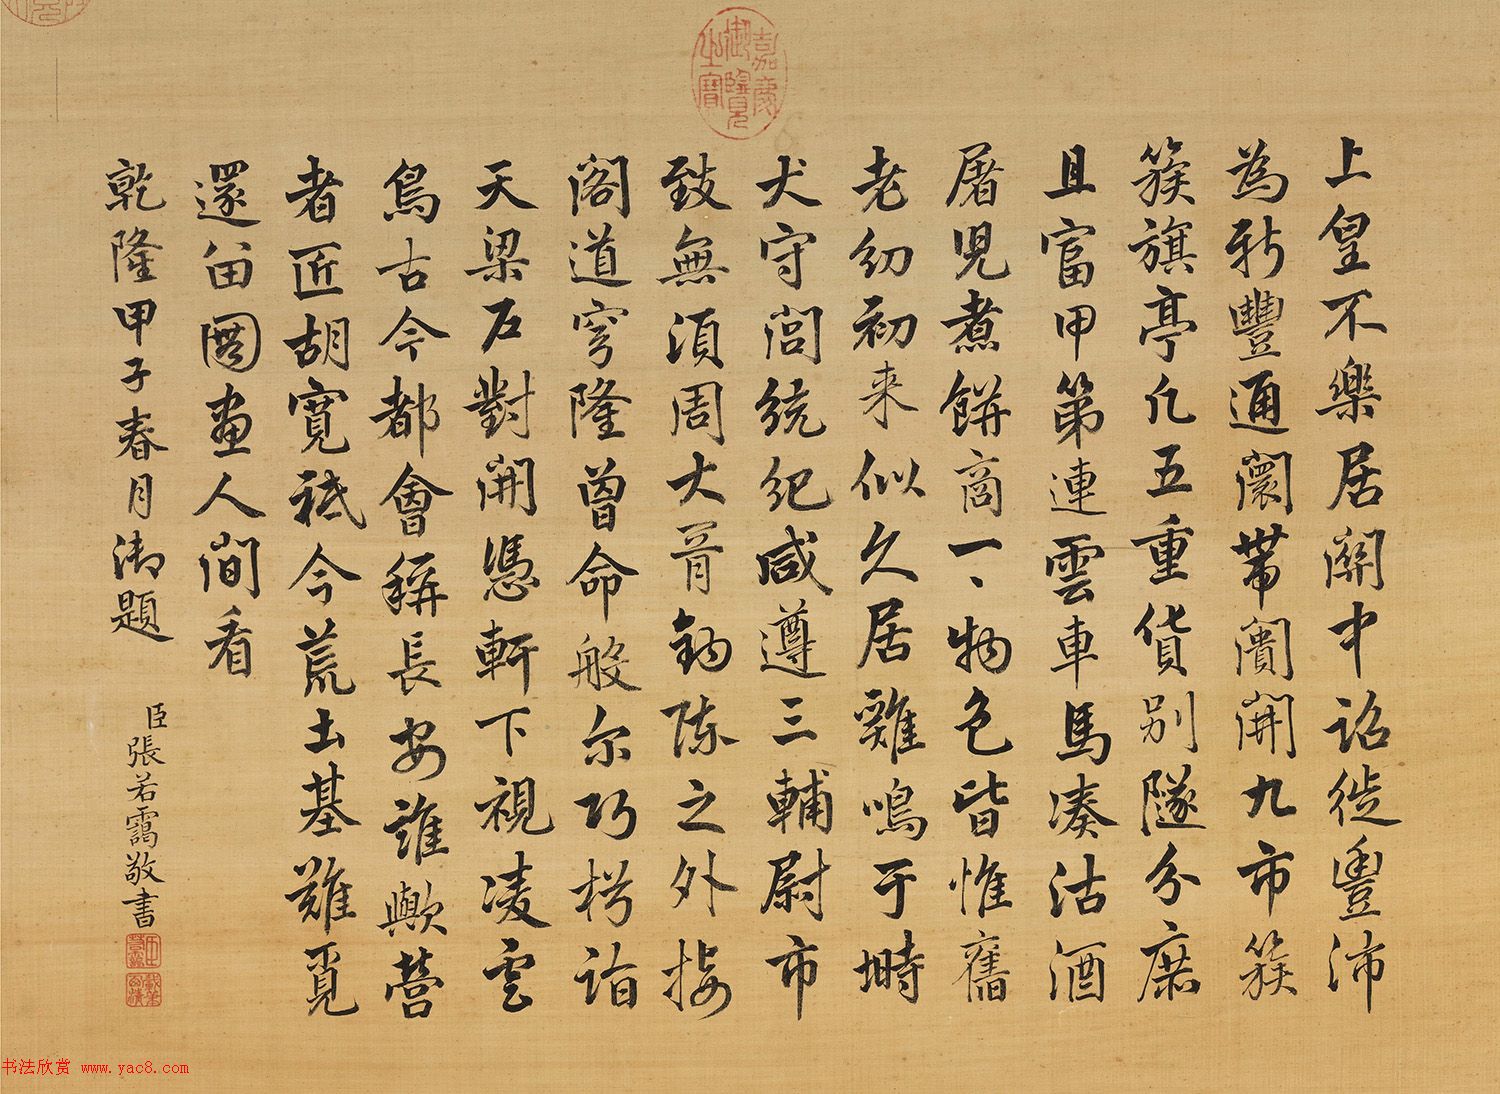 上皇不樂居關中詔徙豐沛
為新豐通闤帶闠開九市簇
簇旗亭凡五重貨別隧分廛
且富甲第連雲車馬湊沽酒
屠兒煮餅商一、物色皆惟舊
老幼初来似久居雞鳴于塒
犬守閭統紀咸遵三輔尉市
致無須周大胥鉤陳之外接
閣道穹隆曾命般尔巧枍詣
天梁石對開憑軒下視凌雲
鳥古今都會稱長安誰歟營
者匠胡寬祗今荒土基難覓
還留圖畫人間看
乾隆甲子春月御題
臣張若靄敬書
嘉慶御覽之寶
书法欣赏 www.yac8.com